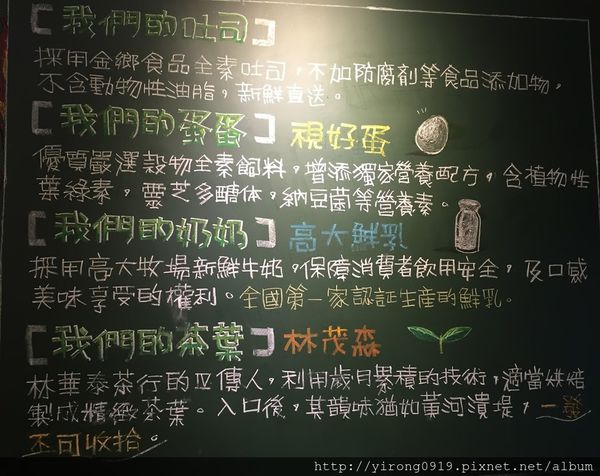 [我們的吐司]
採用金鄉食品全素吐司,不加防腐劑等食品添加物,
不含動物性油脂,新鮮直送。
[我們的蛋蛋] 視好蛋
優質嚴選穀物全素飼料,增添獨家營養配方,含植物性
葉綠素,靈芝多醣体,納豆菌等營養素。
[我們的奶奶] 高大鮮乳
採用高大牧場新鮮牛奶。保障消費者飲用安全,及口感
美味享受的權利。全國第一家認証生産的鮮乳。
[我們的茶葉] 林茂森
林華泰茶行的正傳人,利用歲月累積的技術,適當烘焙
製成精緻茶葉。入口後,其韻味猶如黃河潰堤,一發
不可收拾。
http://yirong0919.pixnet.net/album